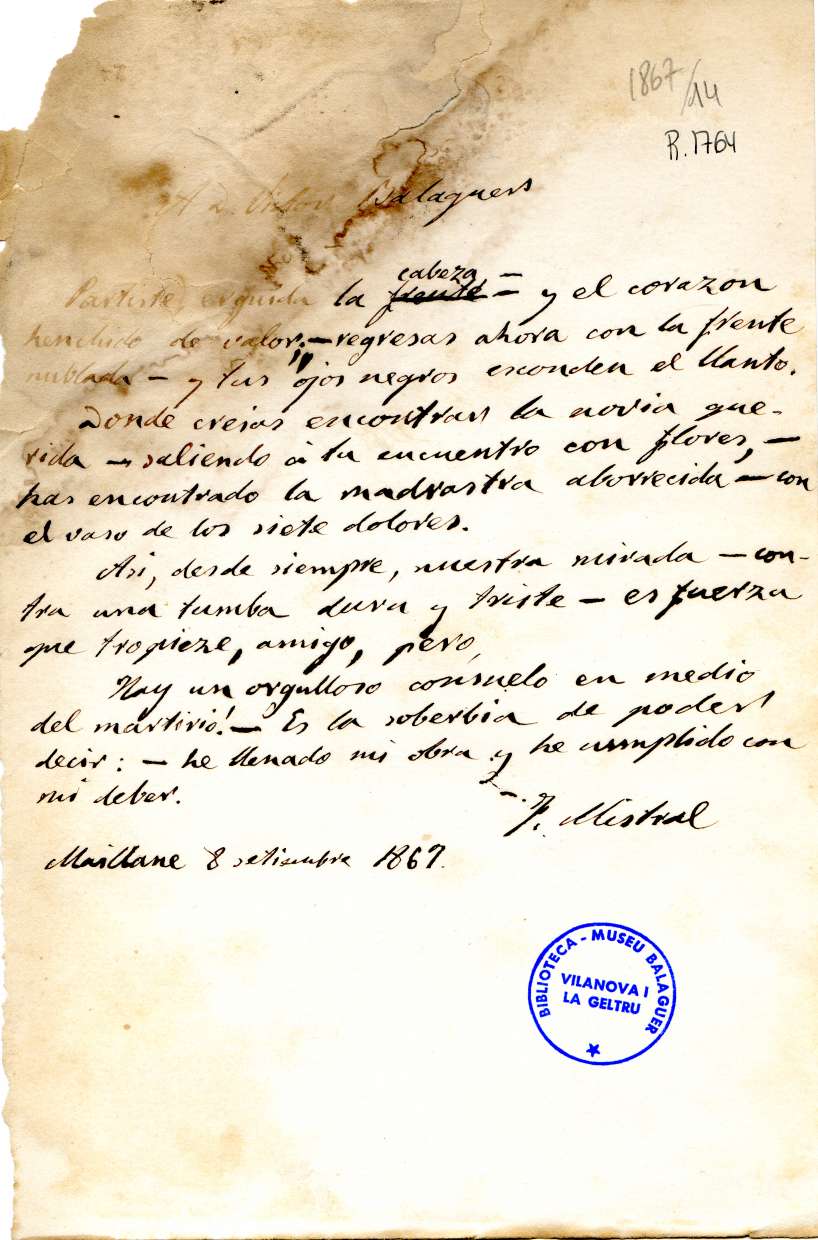 1867/14
R.1764
A D. Victor Balaguer
Partiste, erguida la cabeza frente – y el corazon
henchido de valor; – regresas ahora con la frente
nublada – y tus ojos negros esconden el llanto.
Donde creias encontrar la novia que-
rida – saliendo á tu encuentro con flores, –
has encontrado la madrastra aborrecida – con
el vaso de los siete dolores.
Asi, desde siempre, nuestra mirada – con-
tra una tumba dura y triste – es fuerza
que tropieze, amigo, pero,
Hay un orgulloso consuelo en medio
del martirio! – Es la soberbia de poder
decir: – he llenado mi obra y he cumplido con
mi deber.
F. Mistral
Maillane 8 setiembre 1867.
BIBLIOTECA - MUSEU BALAGUER
VILANOVA I
LA GELTRU